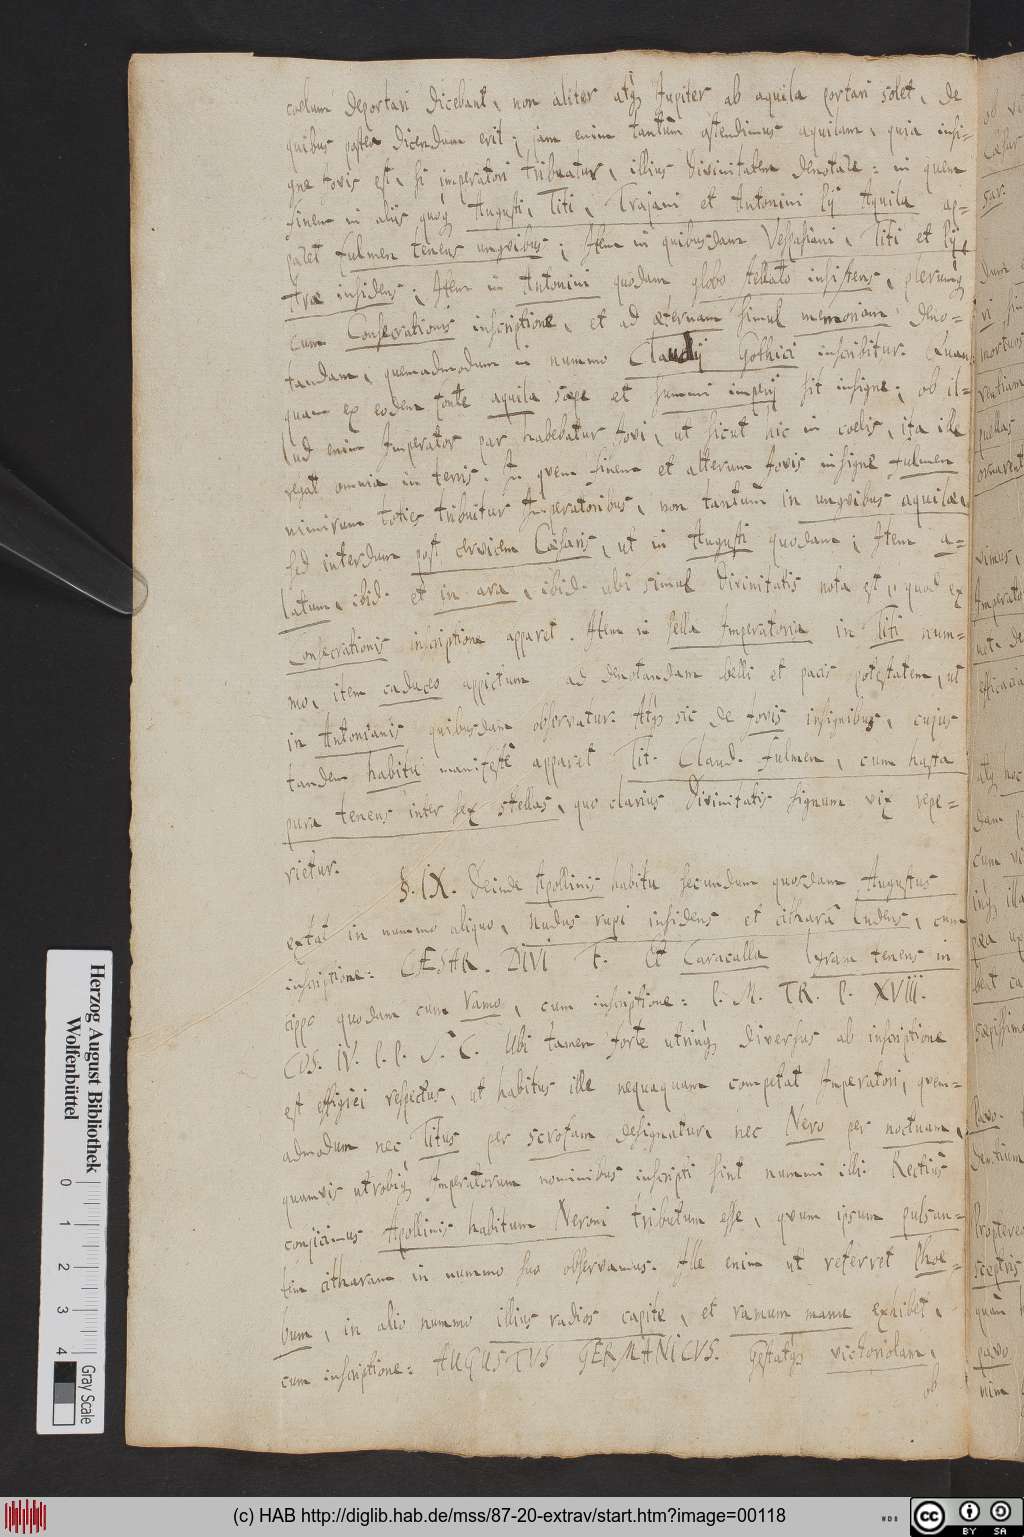 coelum deportari dicebant, non aliter atq; Jupiter ab aquila portari solet, de
quibus postea dicendum erit; jam enim tantum ostendimus aquilam, quia insi=
gne Jovis est, si imperatori tribuatur, illius divinitatem denotare: in quem
finem in aliis quoq; Augusti, Titi, Trajani et Antonini Pij Aquila ap=
paret fulmen tenens ungvibus; Item in quibusdam Vespasiani, Titi et Pij,
Aræ insidens; Item in Antonini quodam globo stellato insistens, plerumq;
cum Consecrationis inscriptione, et ad æternam simul memoriam deno=
tandam, quemadmodum in nummo Claudij Gothici inscribitur. Quan=
quam ex eodem fonte aquila sæpe et summi imperij sit insigne; ob il=
lud enim Imperator par habebatur Jovi, ut sicut hic in coelis, ita ille
regat omnia in terris. In qvem finem et alterum Jovis insigne fulmen
nimirum toties tribuitur Imperatoribus, non tantum in ungvibus aquilæ,
sed interdum post cervicem Cæsaris, ut in Augusti quodam; Item a=
latum, ibid. et in ara, ibid. ubi simul divinitatis nota est, quod ex
Consecrationis inscriptione apparet. Item in sella Imperatoria in Titi num=
mo, item caduceo appictum ad denotandam belli et pacis potestatem, ut
in Antonianis quibusdam observatur. Atq; sic de Jovis insignibus, cujus
tandem habitu manifeste apparet Tit. Claud. fulmen, cum hasta
pura tenens inter sex stellas, quo clarius divinitatis signum vix repe=
rietur.
§. IX. Deinde Apollinis habitu secundum quosdam Augustus
extat in nummo aliquo, nudus rupi insidens et citharâ ludens, cum
inscriptione: CÆSAR. DIVI F. Et Caracalla lyram tenens in
cippo quodam cum ramo, cum inscriptione: P. M. TR. P. XVIII.
COS. IV. P. P. S. C. Ubi tamen forte utrinq; diversus ab inscriptione
est effigiei respectus, ut habitus ille nequaquam competat Imperatori, qvem=
admodum nec Titus per scrofam designatur, nec Nero per noctuam,
quamvis utrobiq; Imperatorum nominibus inscripti sint nummi illi. Rectius
conjicimus Apollinis habitum Neroni tributum esse, qvum ipsum pulsan=
tem citharam in nummo suo observamus. Ille enim ut referret Phoe=
bum, in alio nummo illius radios capite, et ramum manu exhibet,
cum inscriptione: AUGUSTVS GERMANICVS. Gestatq; victoriolam,
ob
Herzog August Bibliothek
Wolfenbüttel
0 1 2 3 4
Gray Scale
(c) HAB http://diglib.hab.de/mss/87-20-extrav/start.htm?image=00118
cc BY SA